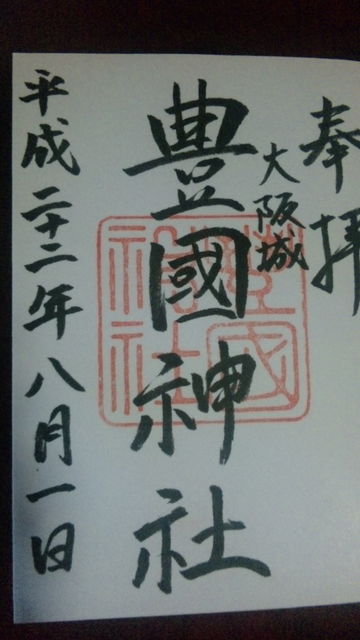 奉拝
大阪城
豊國神社
平成二十二年八月一日
豊國神社